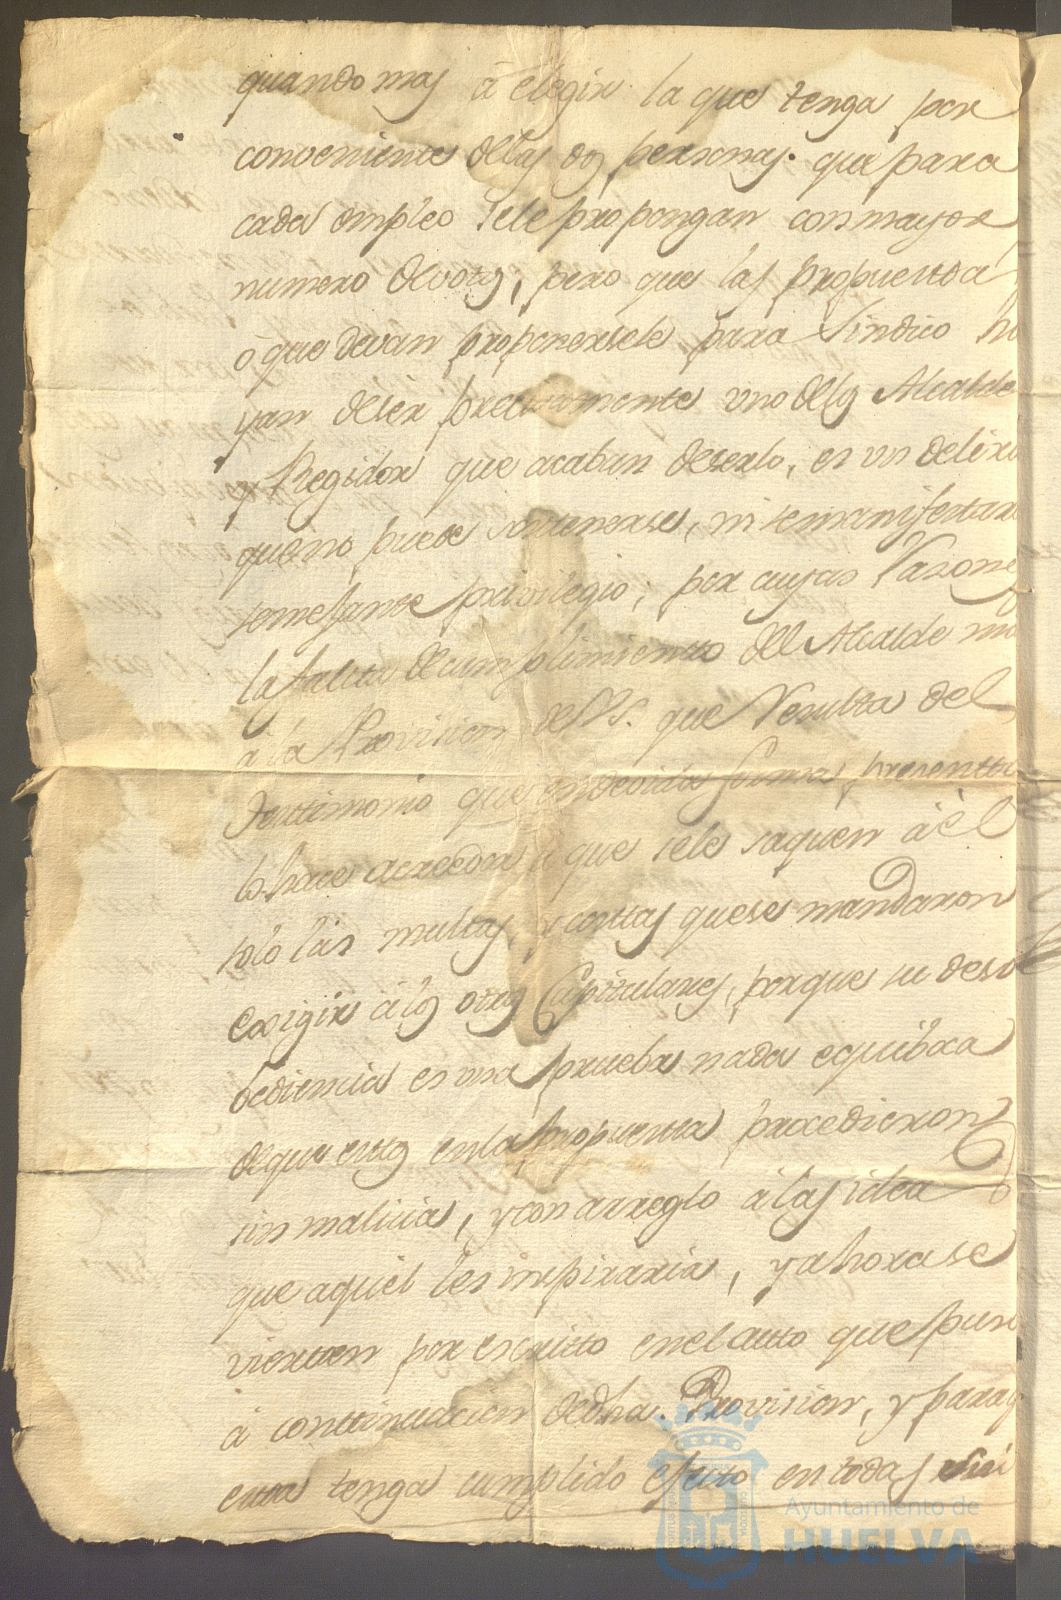 quando mas à elegir la que tenga por
conveniente de las dos personas que para
cada empleo se le propongan con mayor
numero de votos, pero que las propuesta
ò que devan proponersele para Sindico ha
yan de ser precisamente uno de los Alcalde
y Regidor que acaban de serlo, es un delirio
que no puede sostenerse, ni se manifestara
semejante privilegio; por cuyas razones
la falta de cumplimiento del Alcalde
à la Provision de V.S. que resulta del
testimonio que en devida forma presento
lo hace acreedor à que se le saquen à èl
solo las multas, y costas que se mandaron
exigir à los otros Capitulares, porque su deso
bediencia es una prueba nada equiboca
de que estos en la propuesta procedieron
sin malicia, y con arreglo à las idea
que aquel les inspiraria, y ahora se
vierten por escrito en el auto que puso
à continuacion de dha. Provision, y para q
esta tenga cumplido efecto en todas sus
Ayuntamiento de
HUELVA